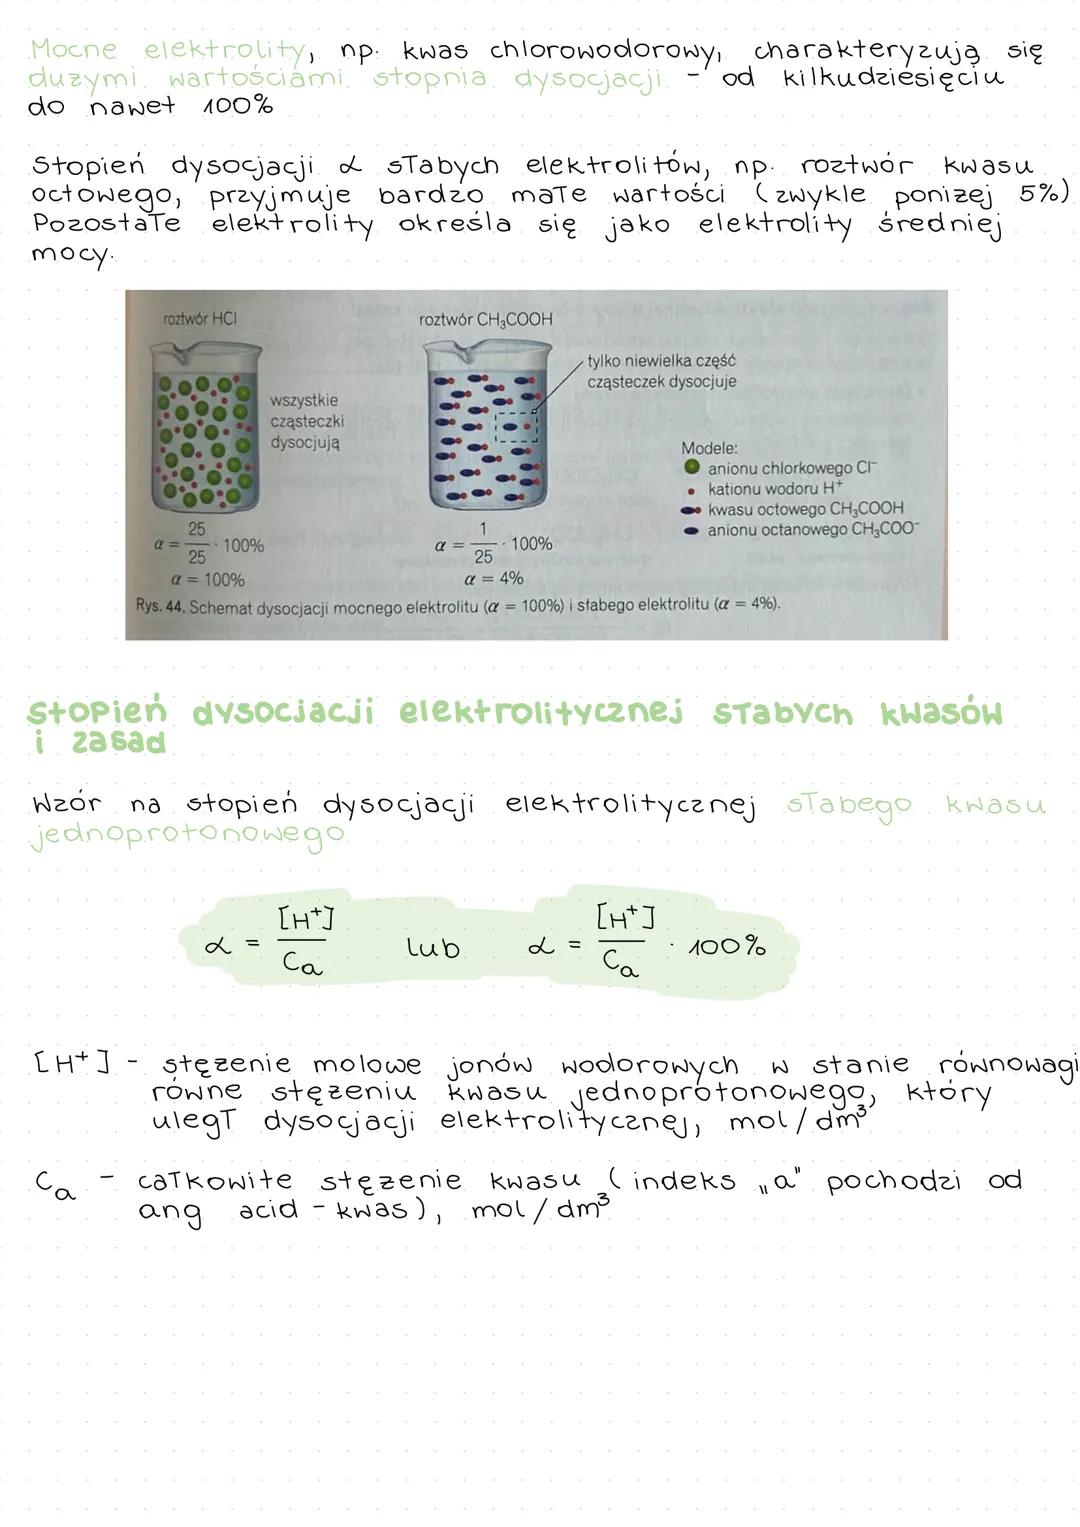 Mocne elektrolity, np. kwas chlorowodorowy, charakteryzują się
dużymi wartościami stopnia dysocjacji - od kilkudziesięciu
do nawet 100%
Stopień dysocjacji α słabych elektrolitów, np. roztwór kwasu
octowego, przyjmuje bardzo małe wartości (zwykle poniżej 5%)
Pozostałe elektrolity określa się jako elektrolity średniej
mocy.
roztwór HCl
wszystkie
cząsteczki
dysocjują
α = 25/25 · 100%
α = 100%
roztwór CH₃COOH
tylko niewielka część
cząsteczek dysocjuje
α = 1/25 · 100%
α = 4%
Modele:
anionu chlorkowego Cl⁻
kationu wodoru H⁺
kwasu octowego CH₃COOH
anionu octanowego CH₃COO⁻
Rys. 44. Schemat dysocjacji mocnego elektrolitu (α = 100%) i słabego elektrolitu (α = 4%).
Stopień dysocjacji elektrolitycznej słabych kwasów
i zasad
Wzór na stopień dysocjacji elektrolitycznej słabego kwasu
jednoprotonowego
α = [H⁺]/Ca lub α = [H⁺]/Ca · 100%
[H⁺] - stężenie molowe jonów wodorowych w stanie równowagi
równe stężeniu kwasu jednoprotonowego, który
uległ dysocjacji elektrolitycznej, mol/dm³
Ca - całkowite stężenie kwasu (indeks „a" pochodzi od
ang acid - kwas), mol/dm³